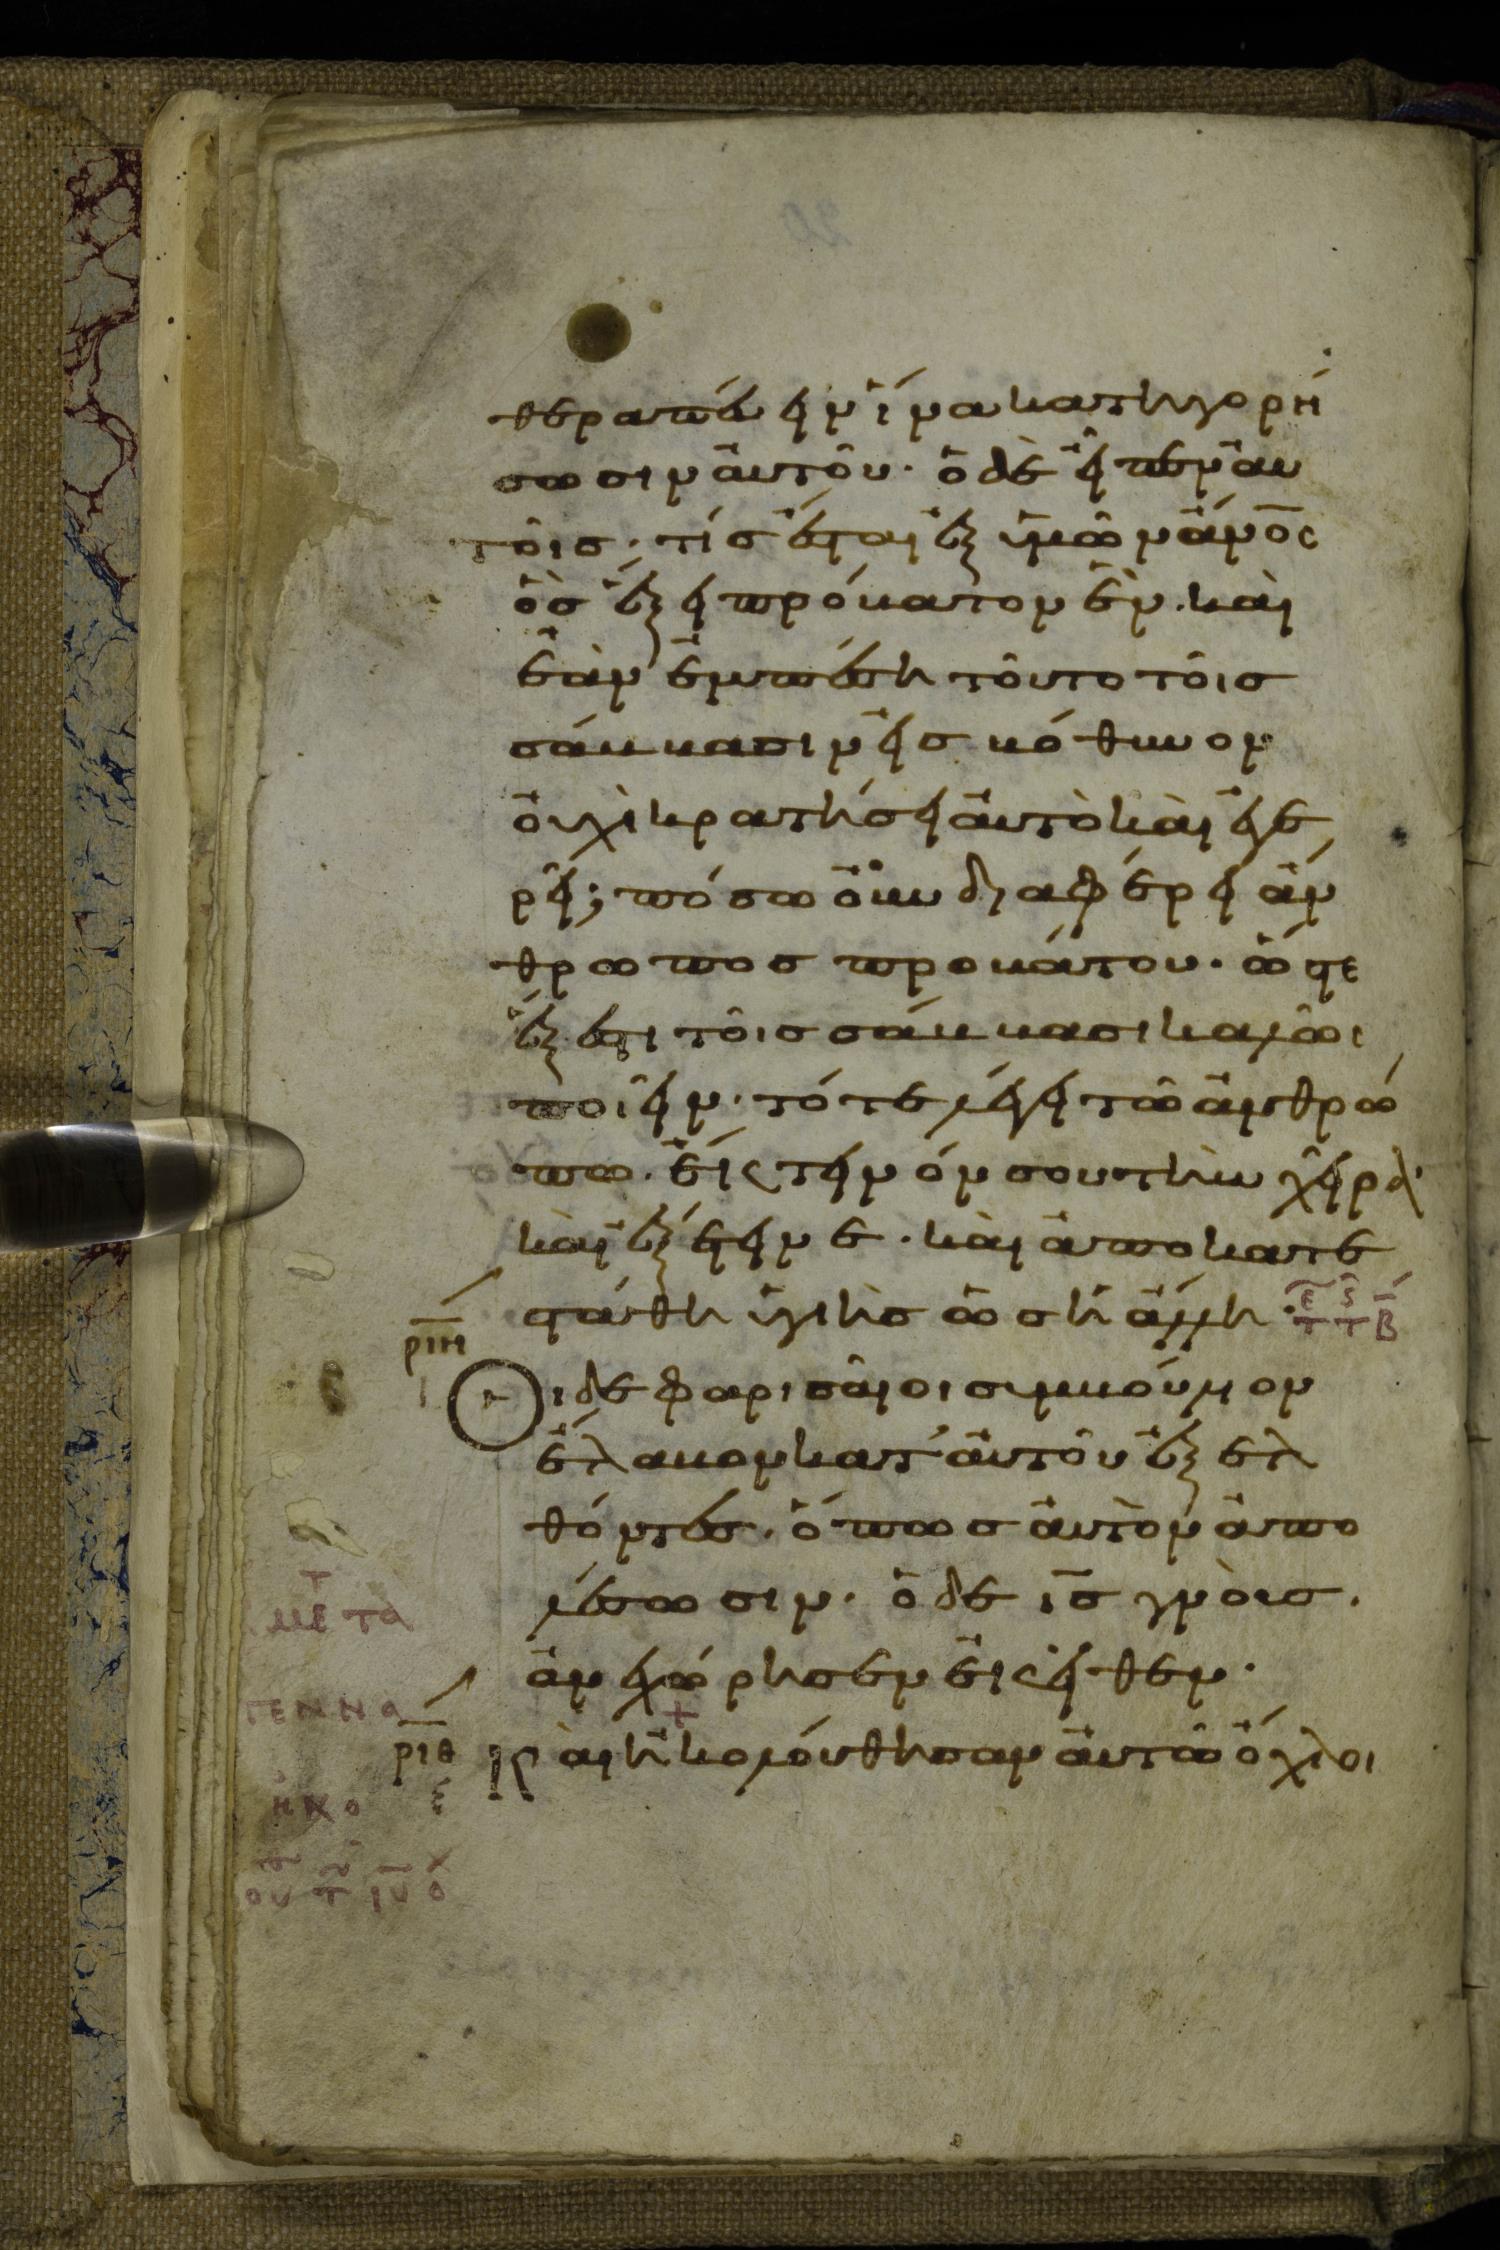 θεραπεύειν ἵνα κατηγορή
σωσιν αὐτοῦ· ὁ δὲ εἶπεν αὐ
τοῖς· τίς ἔσται ἐξ ὑμῶν ἄν̅ο̅ς
ὃς ἕξει πρόβατον ἓν· καὶ
ἐὰν ἐμπέση τοῦτο τοῖς
σάββασιν εἰς βόθυνον
οὐχὶ κρατήσει αὐτὸ καὶ ἐγε
ρεῖ; πόσω οὖν διαφέρει ἄν
θρωπος προβάτου· ὥστε
ἔξεστι τοῖς σάββασι καλῶς
ποιεῖν· τότε λέγει τῶ ἀνθρώ
πω· ἔκτεινόν σου τὴν χεῖρα
καὶ ἐξέτεινε· καὶ ἀποκατε
στάθη ὑγιὴς ὡς ἡ ἄλλη·
ριη
Οἱ δὲ φαρισαῖοι συμβούλιον
ἔλαβον κατ' αὐτοῦ ἐξελ
θόντες· ὅπως αὐτὸν ἀπο
λέσωσιν· ὁ δὲ ι̅ς̅ γνοὺς·
ἀνεχώρησεν ἐκεῖθεν·
ριθ καὶ ἠκολούθησαν αὐτῶ ὄχλοι